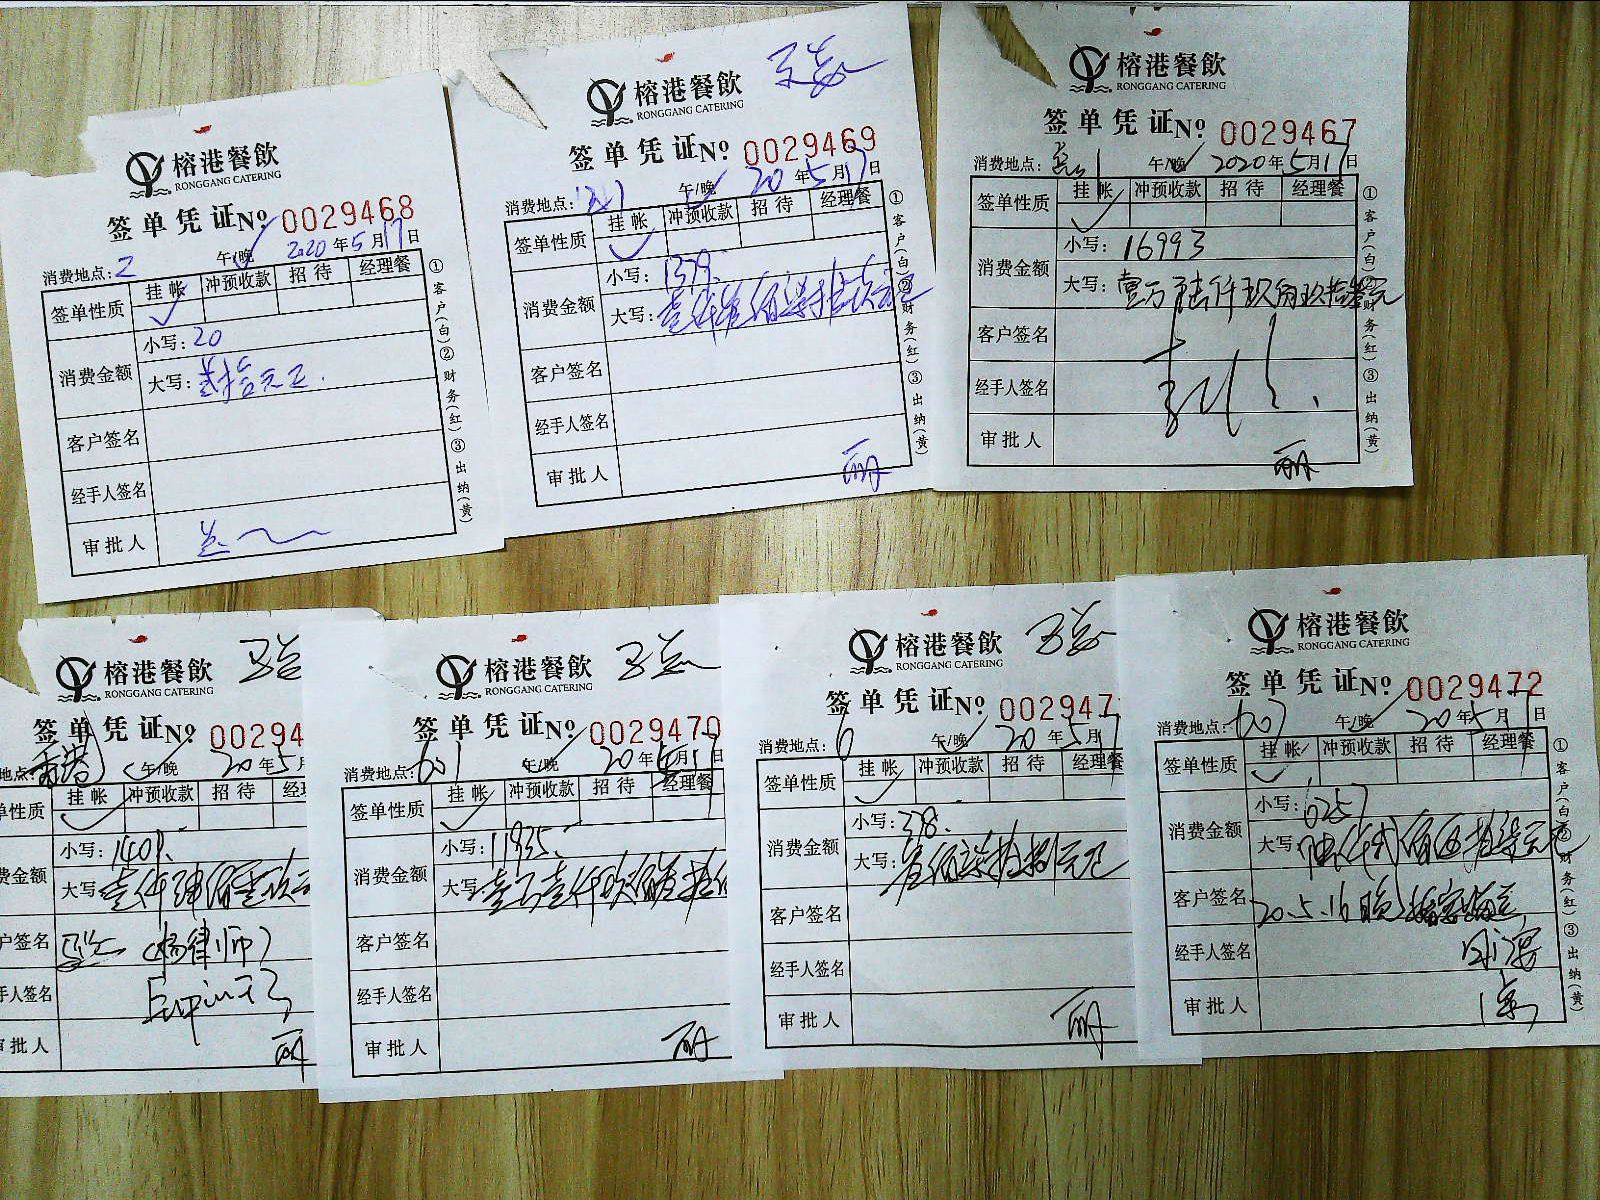 榕港餐飲
RONGGANG CATERING
签单凭证 No 0029468
消费地点: 2 午/晚 2020年5月17日
签单性质 挂帐 冲预收款 招待 经理餐
消费金额 小写: 20
大写: 贰拾元正.
客户签名
经手人签名
审批人
①客户(白)②财务(红)③出纳(黄)
榕港餐飲
RONGGANG CATERING
签单凭证 No 0029469
消费地点: 午/晚 20年5月17日
签单性质 挂帐 冲预收款 招待 经理餐
消费金额 小写: 1379.
大写: 壹仟叁佰柒拾玖元正
客户签名
经手人签名
审批人 丽丹
①客户(白)②财务(红)③出纳(黄)
榕港餐飲
RONGGANG CATERING
签单凭证 No 0029467
消费地点: 午/晚 2020年5月17日
签单性质 挂帐 冲预收款 招待 经理餐
消费金额 小写: 16993
大写: 壹万陆仟玖佰玖拾叁元
客户签名
经手人签名
审批人 丽丹
①客户(白)②财务(红)③出纳(黄)
榕港餐飲
RONGGANG CATERING
签单凭证 No 00294
地点: 香港 午/晚 20年5月
单性质 挂帐 冲预收款 招待 经
费金额 小写: 1409.
大写: 壹仟肆佰零玖元
户签名 (杨律师)
手人签名
批人 丽丹
榕港餐飲
RONGGANG CATERING
签单凭证 No 0029470
消费地点: 601 午/晚 20年5月17日
签单性质 挂帐 冲预收款 招待 经理餐
消费金额 小写: 11935.
大写: 壹万壹仟玖佰叁拾伍
客户签名
经手人签名
审批人 丽丹
榕港餐飲
RONGGANG CATERING
签单凭证 No 002947
消费地点: 6 午/晚 20年5月1
签单性质 挂帐 冲预收款 招待 经理餐
消费金额 小写: 378.
大写: 叁佰柒拾捌元正
客户签名
经手人签名
审批人 丽丹
榕港餐飲
RONGGANG CATERING
签单凭证 No 0029472
消费地点: 607 午/晚 20年5月17日
签单性质 挂帐 冲预收款 招待 经理餐
消费金额 小写: 6257
大写: 陆仟贰佰伍拾柒元正
客户签名 20.5.16晚
经手人签名
审批人
①客户(白)②财务(红)③出纳(黄)